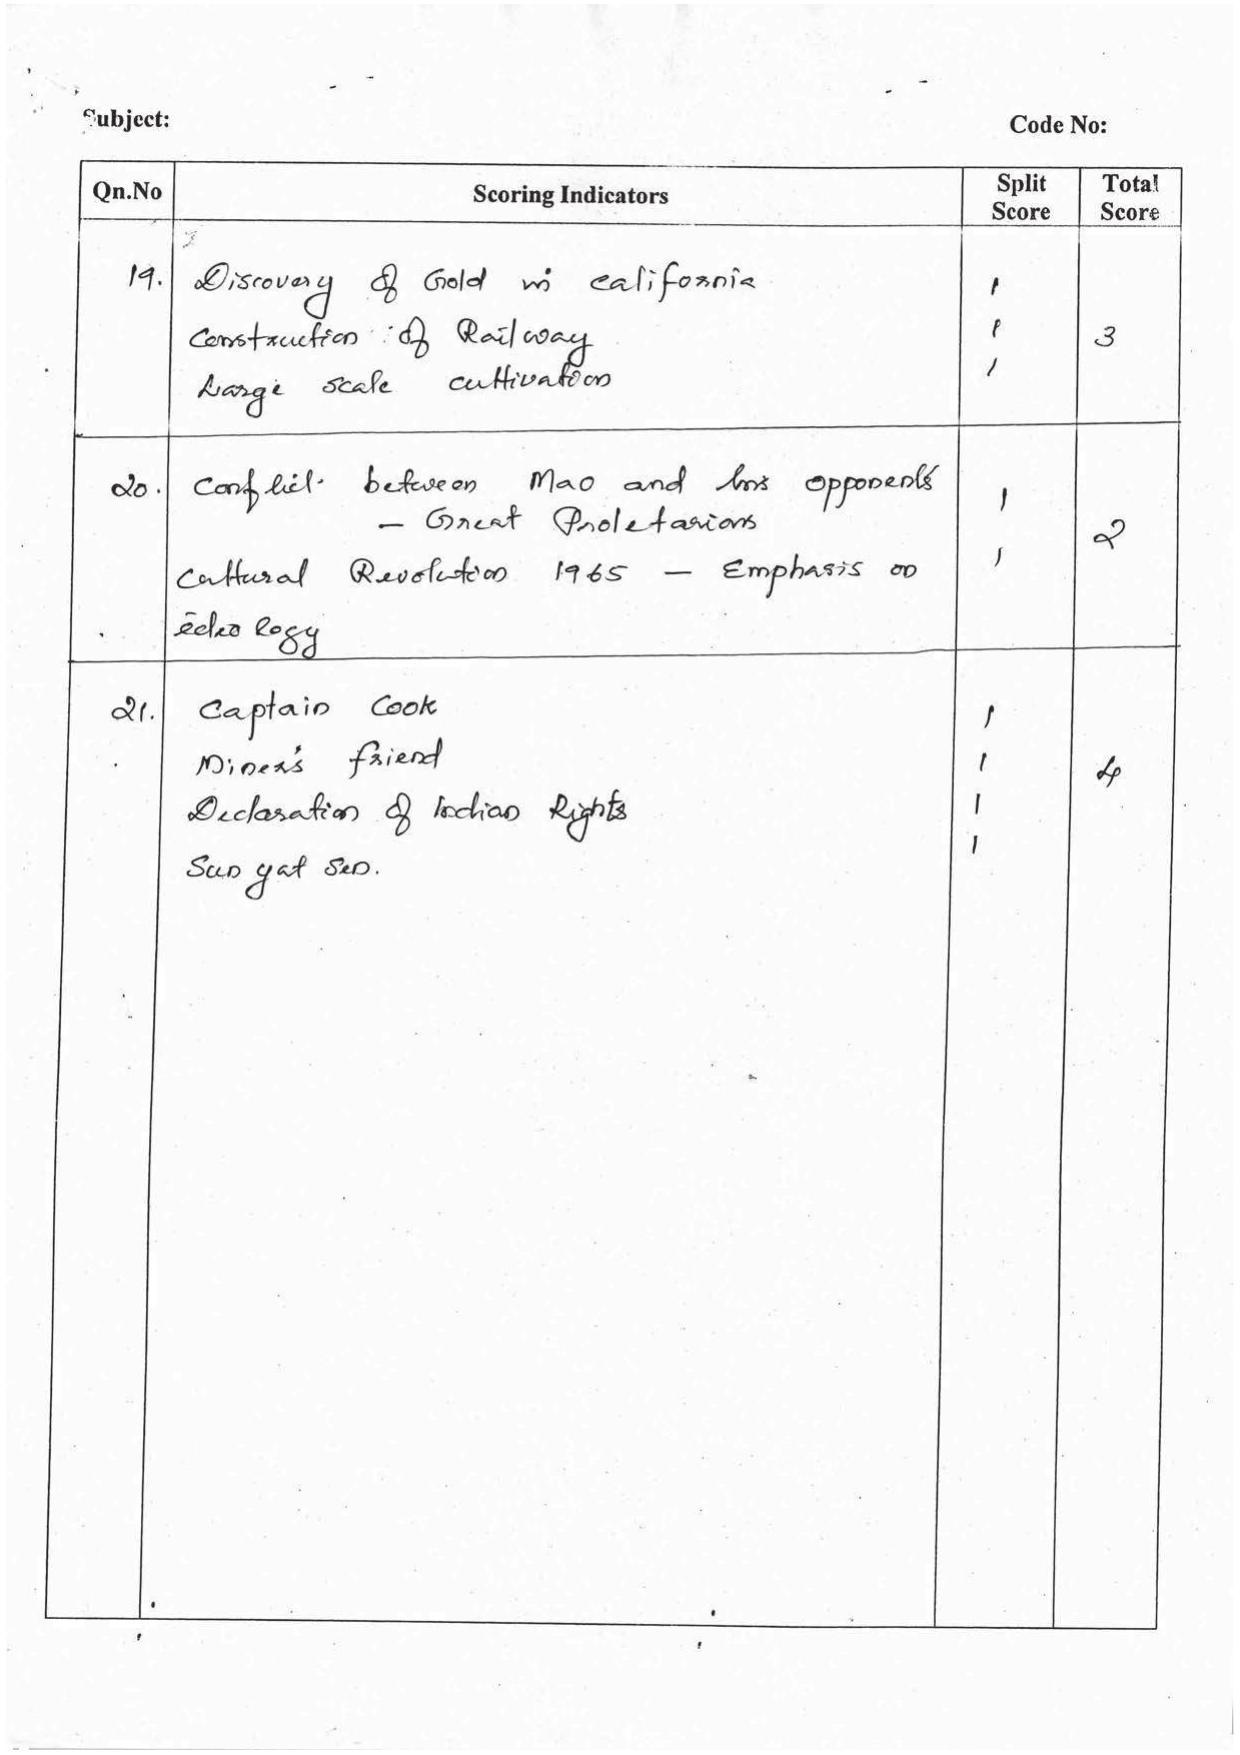 Subject:
Code No:
Qn.No Scoring Indicators Split Score Total Score
19. Discovery of Gold in California 1
Construction of Railway 1 3
Large scale cultivation 1
20. Conflict between Mao and his opponents 1
– Great Proletarians 2
Cultural Revolution 1965 – Emphasis on 1
21. Captain Cook 1
Miner's friend 1 4
Declaration of Indian Rights 1
Sun yat Sen. 1